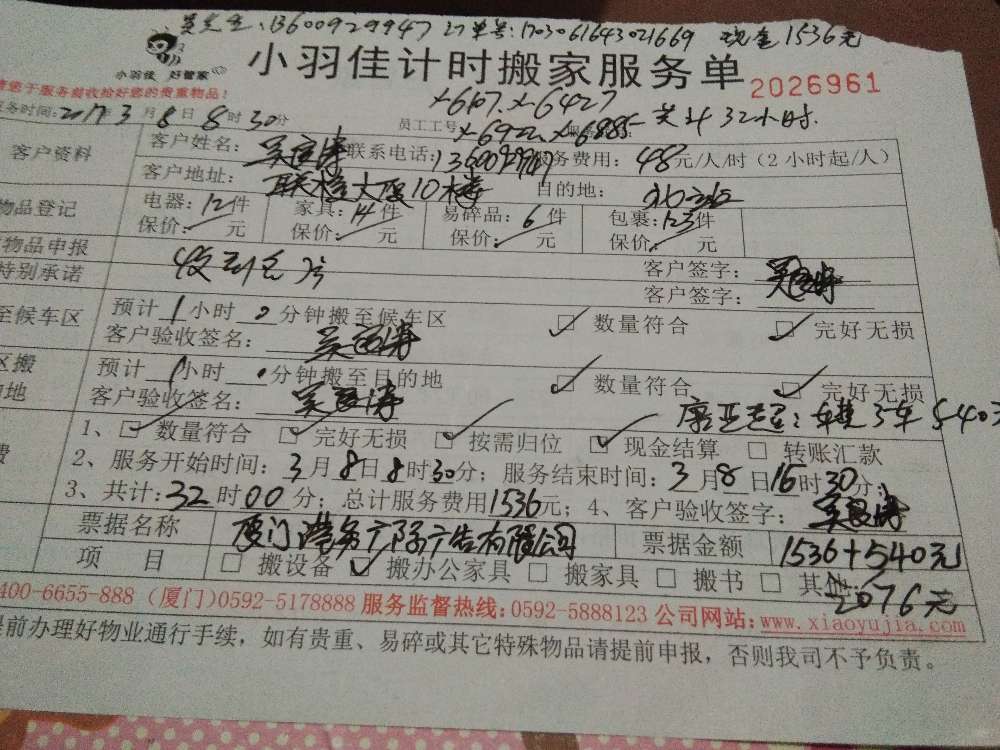 吴先生:13600929947 订单号:1703061643021669 现金1536元
小羽佳 好管家
小羽佳计时搬家服务单 2026961
请您于服务前收拾好您的贵重物品!
服务时间:2017年3月8日8时30分 员工工号 X6107. X-6427
X6922 X6885 共4人 32小时.
客户资料 客户姓名: 联系电话:13600929947 服务费用:48元/人/时(2小时起/人)
客户地址: 联检大厦10楼 目的地:
物品登记 电器:12件 家具:14件 易碎品:6件 包裹:123件
保价: 元 保价: 元 保价: 元 保价: 元
物品申报 客户签字:
特别承诺 客户签字:
至候车区 预计1小时0分钟搬至候车区 ☑ 数量符合 ☑ 完好无损
客户验收签名:
预计1小时0分钟搬至目的地 ☑ 数量符合 ☑ 完好无损
客户验收签名:
3车540元
1、☑ 数量符合 ☑ 完好无损 ☑ 按需归位 ☑ 现金结算 □ 转账汇款
2、服务开始时间:3月8日8时30分;服务结束时间:3月8日16时30分;
3、共计:32时00分;总计服务费用1536元;4、客户验收签字:
票据名称 厦门港务广际广告有限公司 票据金额 1536+540元
项 目 □ 搬设备 ☑ 搬办公家具 □ 搬家具 □ 搬书 □ 其它 2076元
400-6655-888 (厦门)0592-5178888 服务监督热线:0592-5888123 公司网站:www.xiaoyujia.com
提前办理好物业通行手续,如有贵重、易碎或其它特殊物品请提前申报,否则我司不予负责。